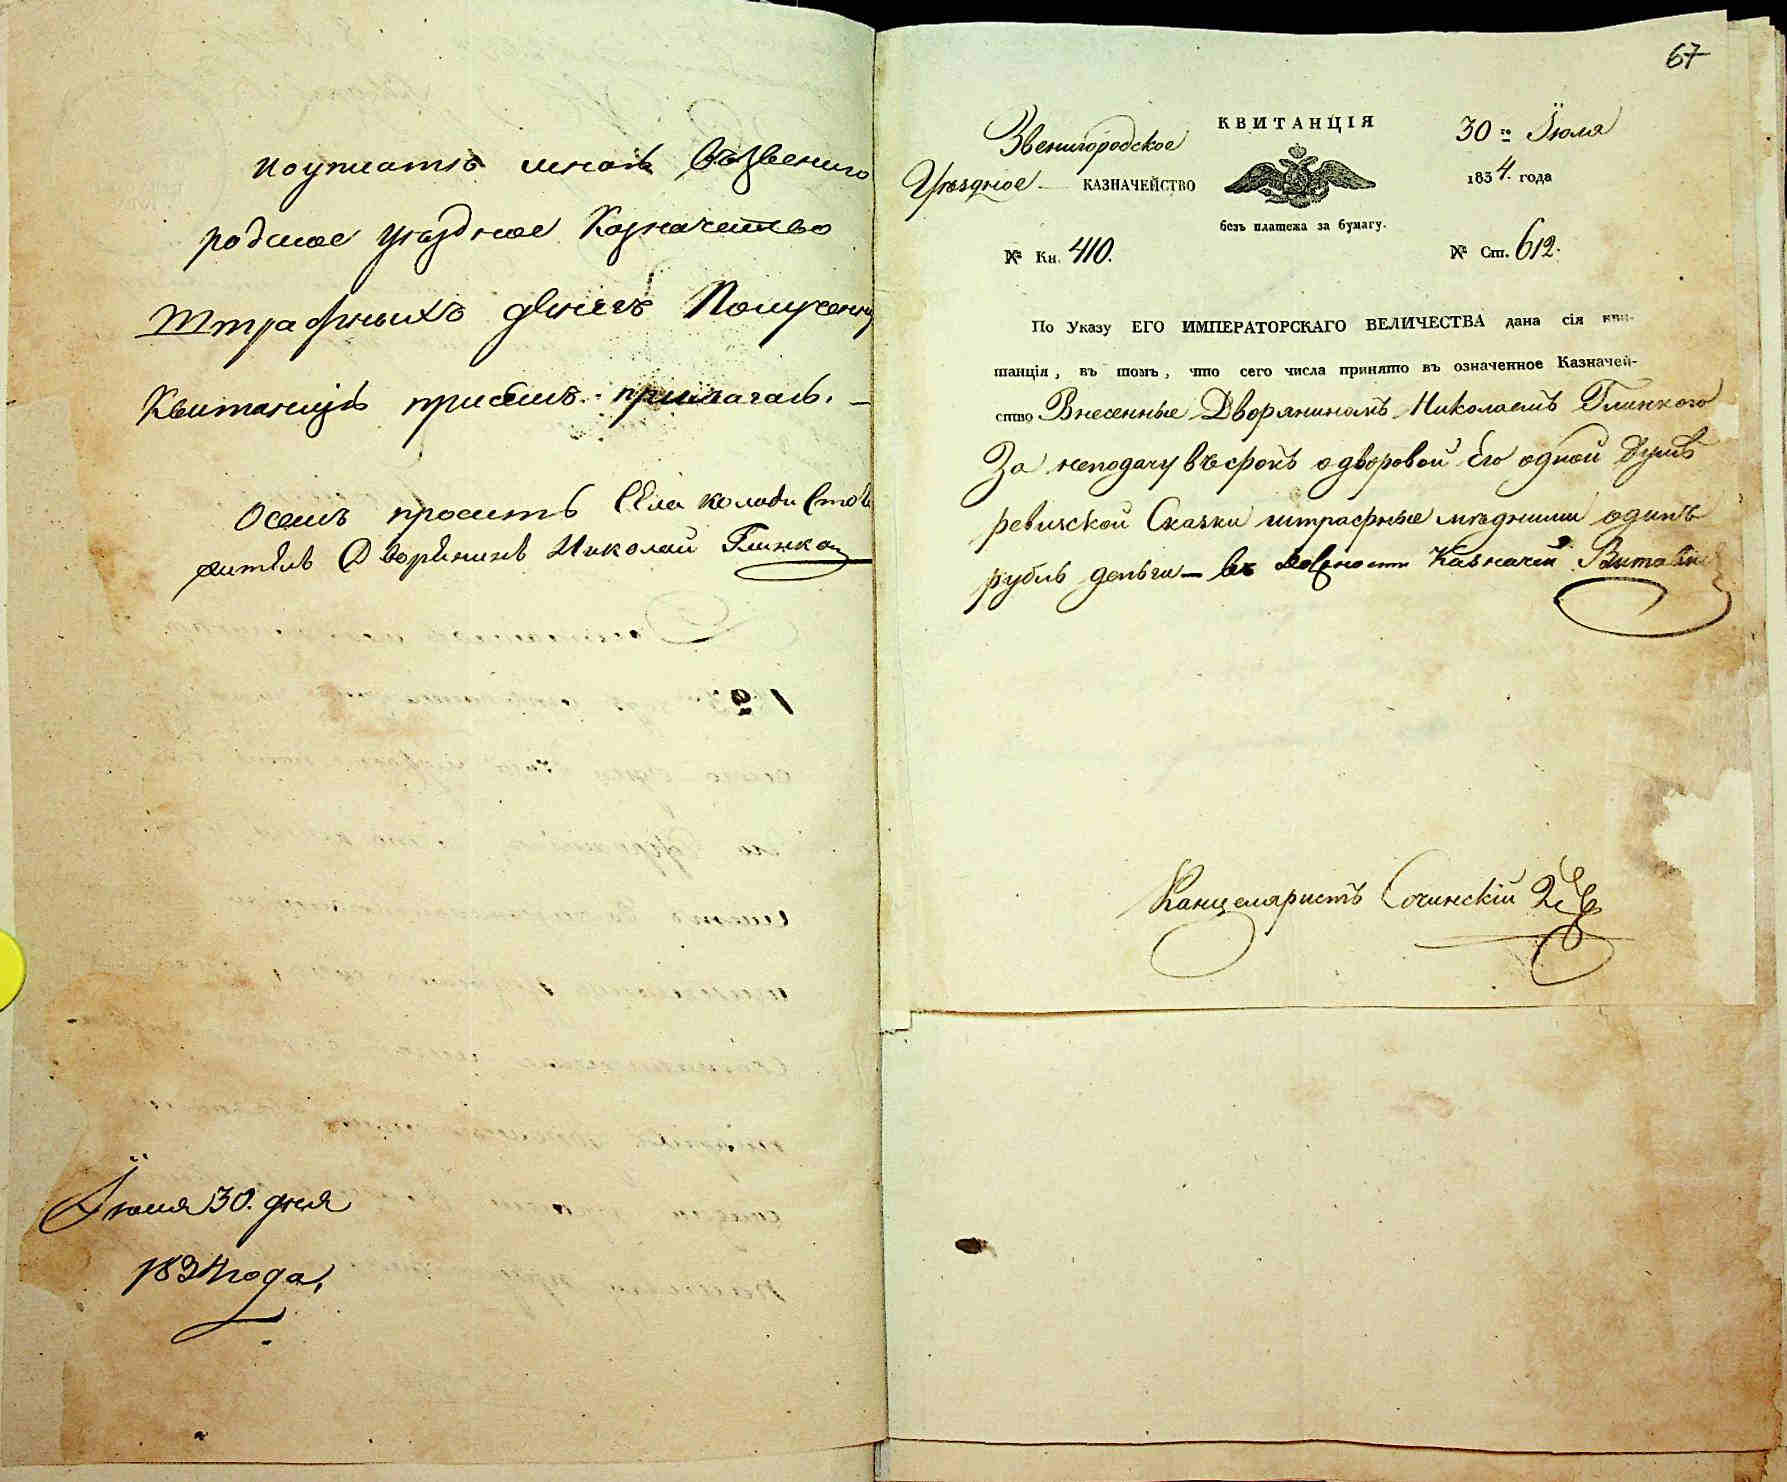 поуплатѣ мною въЗвениго
родское уѣздное Казначейство
Штрафныхъ денегъ Полученну
Квитанцію присемъ прилагаю. —
Осемъ проситъ Села колоди Стои
житель Дворянинъ Николай Глинка
Іюля 30. дня
1834 года,
67
КВИТАНЦІЯ
Звенигородское
Уѣздное КАЗНАЧЕЙСТВО
30 го Іюля
1834. года
безъ платежа за бумагу.
№ Кн. 410.
№ Ст. 612.
По Указу ЕГО ИМПЕРАТОРСКАГО ВЕЛИЧЕСТВА дана сія кви-
танція, въ томъ, что сего числа принято въ означенное Казначей-
ство Внесенные Дворяниномъ Николаемъ Глинкою
За неподачу въ срокъ одворовой его одной душѣ
ревизской Сказки штрафные мѣдными одинъ
рубль деньги — въ Казначей
Канцеляристъ Сочинскій